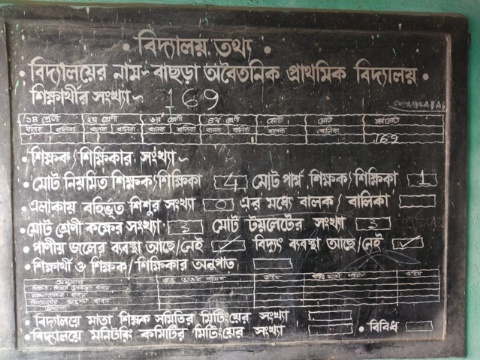 • বিদ্যালয় তথ্য •
• বিদ্যালয়ের নাম- বাছড়া অবৈতনিক প্রাথমিক বিদ্যালয় •
শিক্ষার্থীর সংখ্যা- 169
১ম শ্রেণী ২য় শ্রেণী ৩য় শ্রেণী ৪র্থ শ্রেণী মোট মোট
বালক বালিকা বালক বালিকা বালক বালিকা বালক বালিকা বালক বালিকা
169
• শিক্ষক/শিক্ষিকার সংখ্যা-
• মোট নিয়মিত শিক্ষক/শিক্ষিকা 4 মোট পার্শ্ব শিক্ষক/শিক্ষিকা 1
• এলাকায় বহির্ভূত শিশুর সংখ্যা 0 এর মধ্যে বালক/বালিকা
• মোট শ্রেণী কক্ষের সংখ্যা- 3 মোট টয়লেটের সংখ্যা 3
• পাণীয় জলের ব্যবস্থা আছে/নেই ✓ বিদ্যুৎ ব্যবস্থা আছে/নেই ✓
• শিক্ষার্থী ও শিক্ষক/শিক্ষিকার অনুপাত
• বিদ্যালয়ে মাতা শিক্ষক সমিতির মিটিংয়ের সংখ্যা
• বিদ্যালয়ে মনিটরিং কমিটির মিটিংয়ের সংখ্যা • বিবিধ